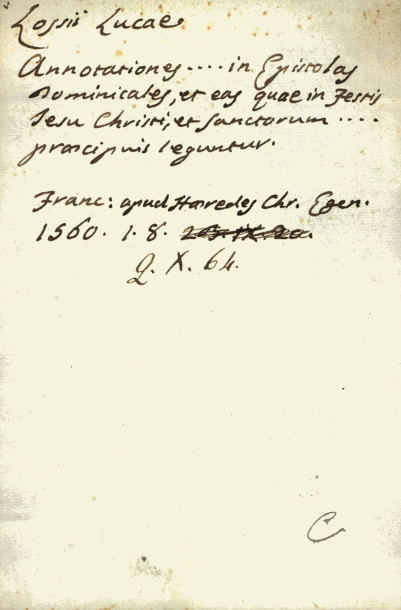 Lossii Lucae
Annotationes .... in Epistolas
Dominicales, et eas quae in Festis
Jesu Christi, et Sanctorum ....
praecipuis leguntur.
Franc: apud Haeredes Chr. Egen.
1560. 1. 8.
Q. X. 64.
C